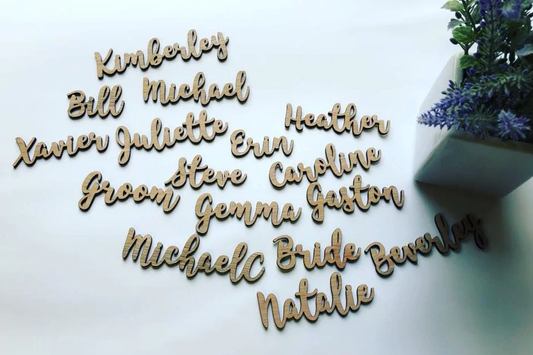 Kimberley
Bill Michael
Xavier Juliette Erin Heather
Groom Steve Caroline
Gemma Gaston
MichaelC Bride Beverley
Natalie